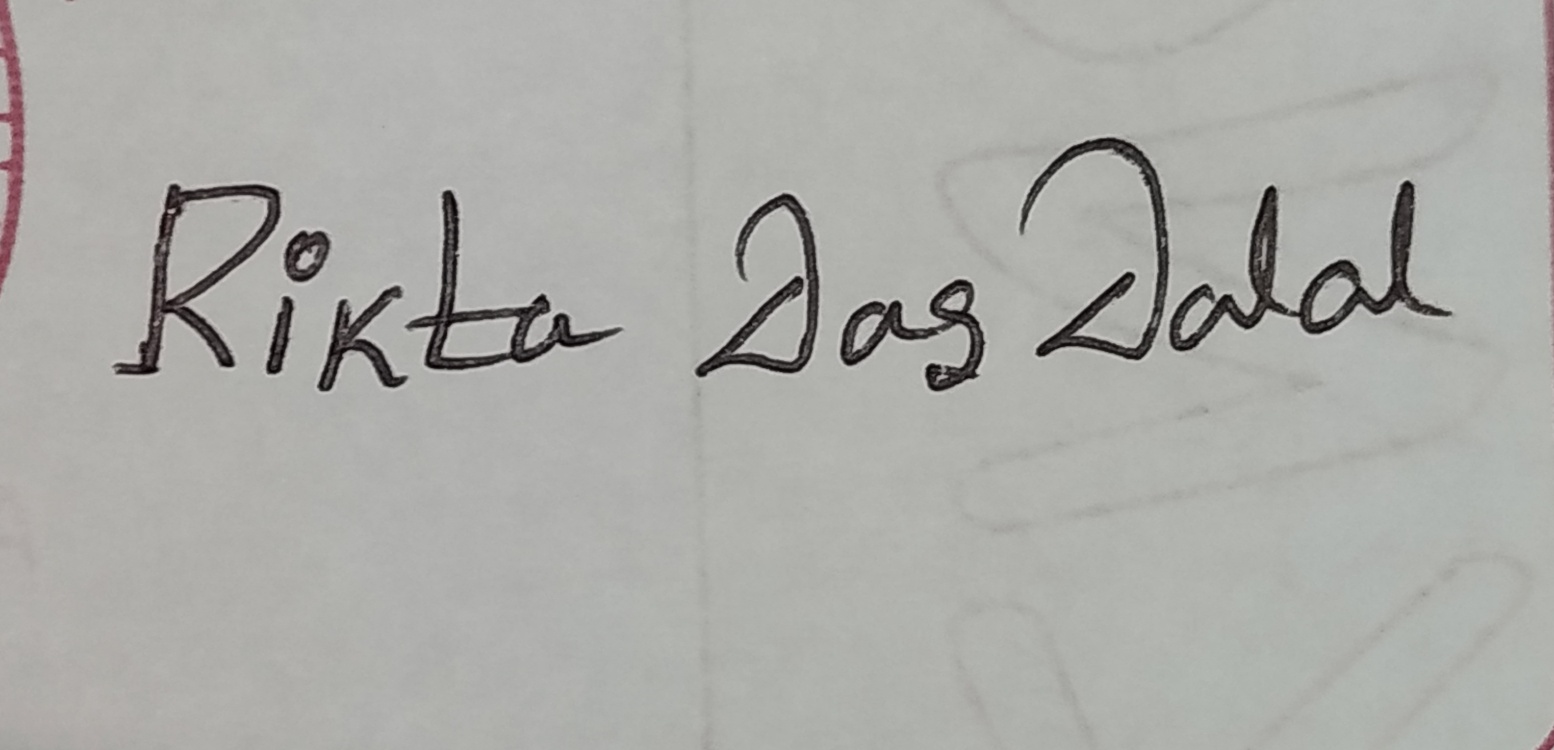 Rikta Das Dalal